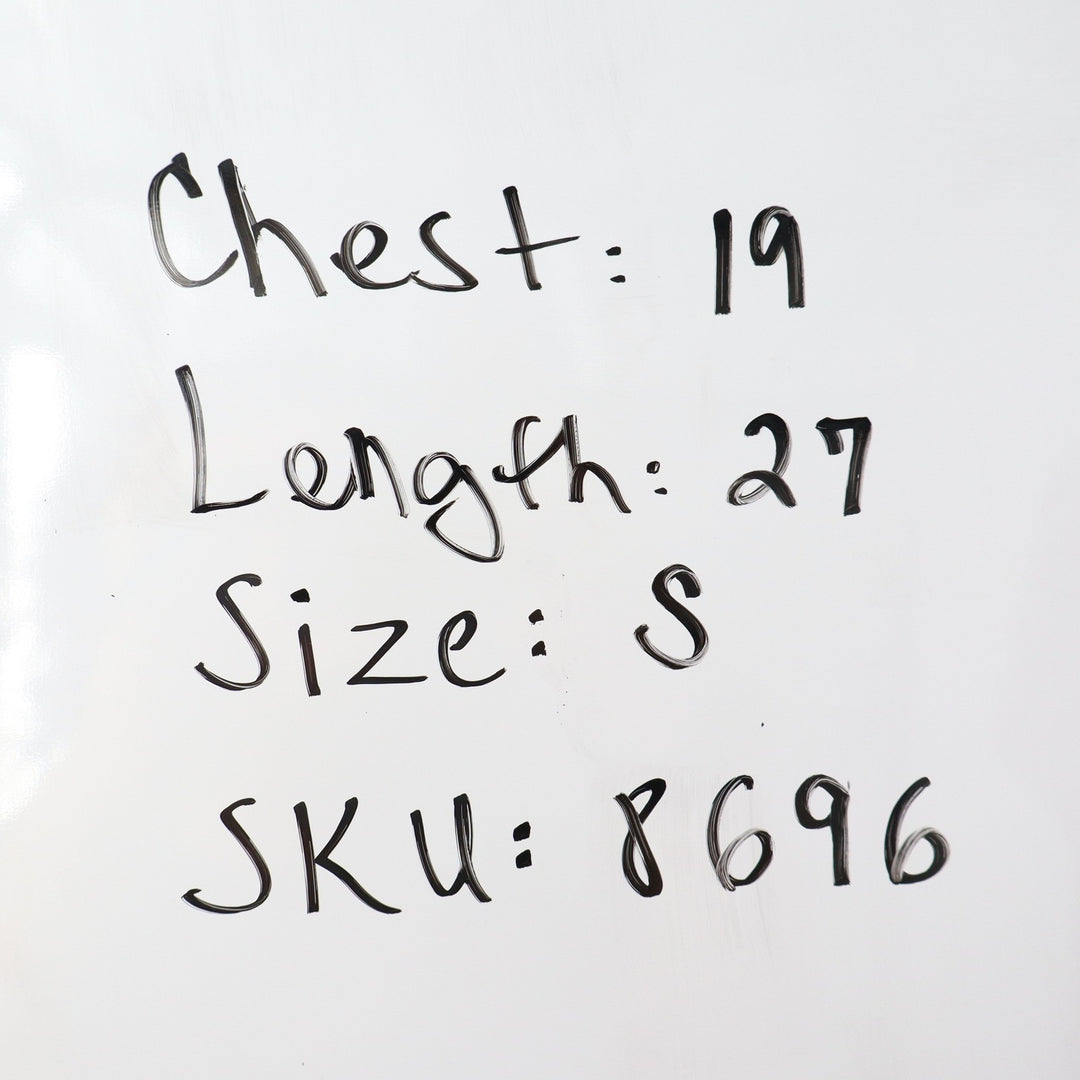 Chest: 19
Length: 27
Size: S
SKU: 8696